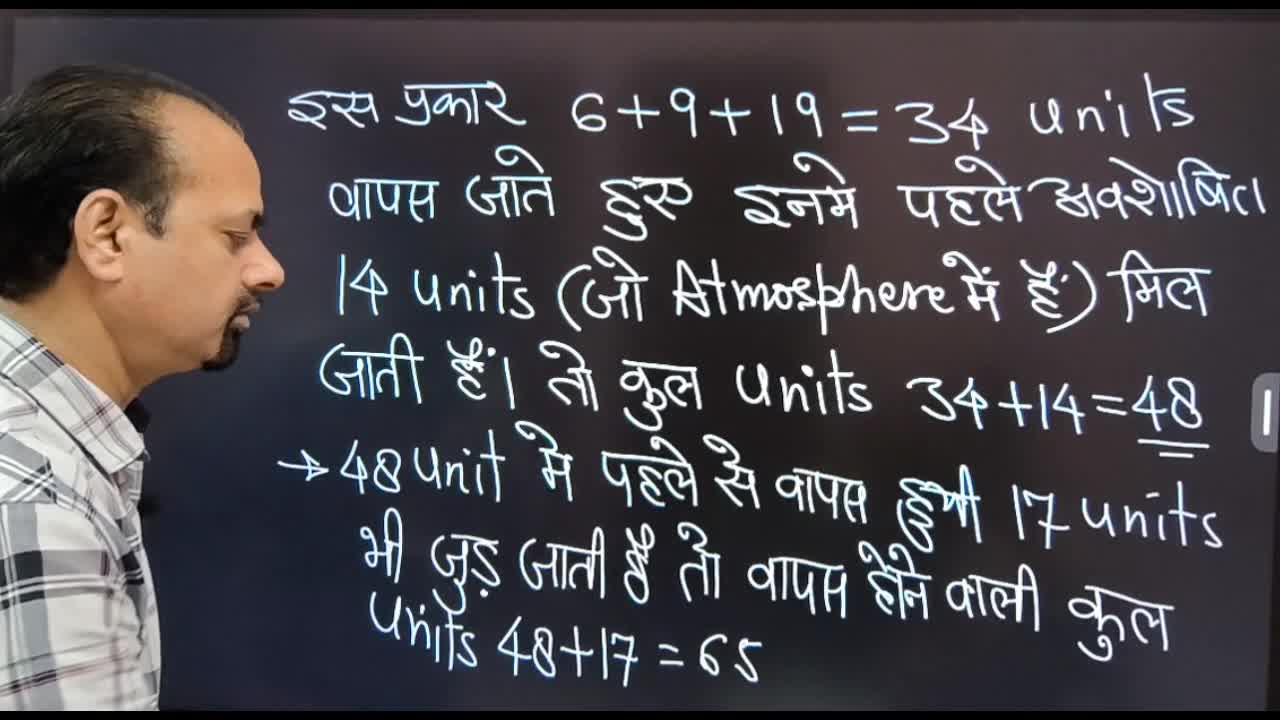 इस प्रकार 6+9+19=34 units
वापस जाते हुए इनमे पहले अवशोषित
14 units (जो Atmosphere में हैं) मिल
जाती हैं। तो कुल units 34+14=48
→48 unit मे पहले से वापस हुयी 17 units
भी जुड़ जाती है तो वापस होने वाली कुल
units 48+17=65